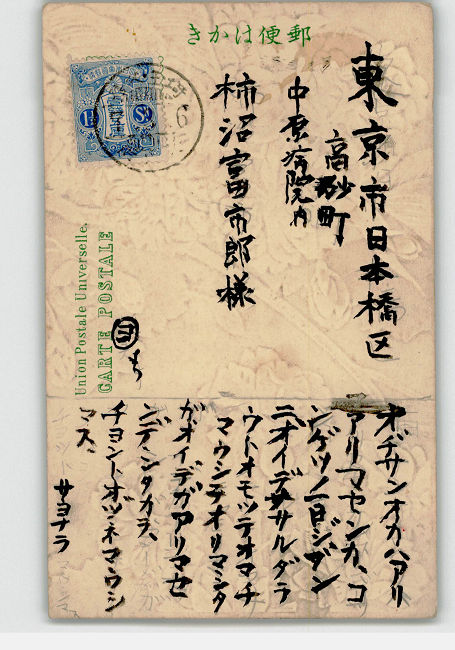 郵便はかき
東京市日本橋区
高砂町
中原病院内
柿沼富市郎様
1½ Sn
Union Postale Universelle.
CARTE POSTALE
オヂサンオカハアリ
アリマセンカ、コ
ンゲツノ一日ジブン
ニオイデナサルダラ
ウトオモツテオマチ
マウシテオリマシタ
ガオイデガアリマセ
ンデシタオラ、
チヨントオヅネマウシ
マス、
サヨナラ